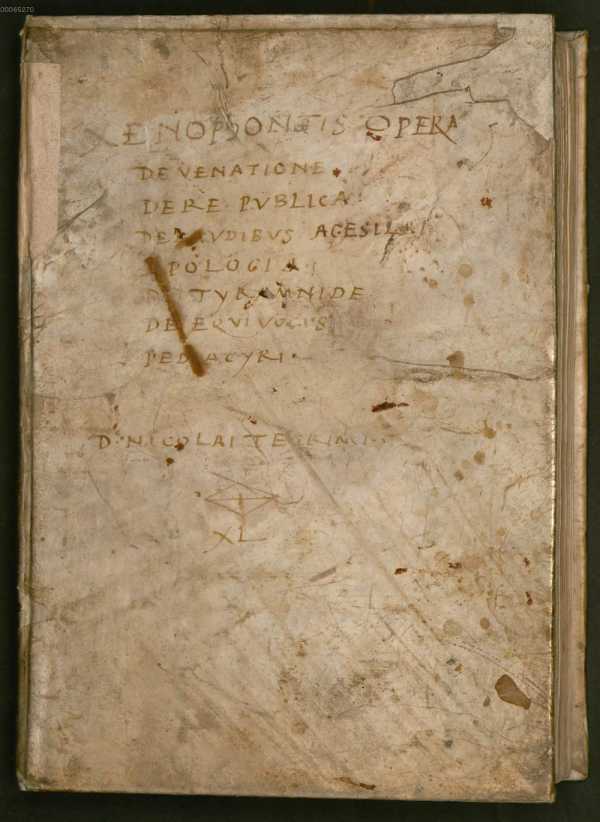 00065270
XENOPHONTIS OPERA
DE VENATIONE
DE RE PVBLICA
DE LAUDIBUS AGESILAI
APOLOGIA
DE TYRAMNIDE
DE EQVIVOCIS
PEDIACYRI
D. NICOLAI TEGRIMI
XL